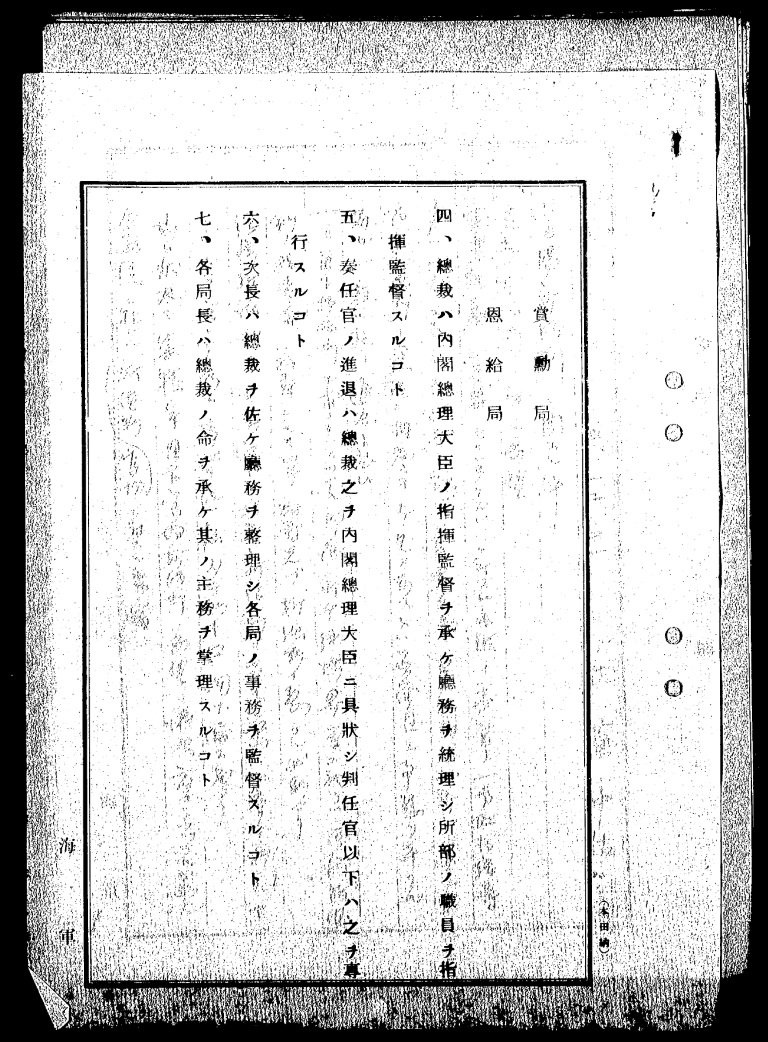 賞勳局
恩給局
四、總裁ハ內閣總理大臣ノ指揮監督ヲ承ケ廳務ヲ統理シ所部ノ職員ヲ指
揮監督スルコト
五、奏任官ノ進退ハ總裁之ヲ內閣總理大臣ニ具狀シ判任官以下ハ之ヲ專
行スルコト
六、次長ハ總裁ヲ佐ケ廳務ヲ整理シ各局ノ事務ヲ監督スルコト
七、各局長ハ總裁ノ命ヲ承ケ其ノ主務ヲ掌理スルコト
海軍